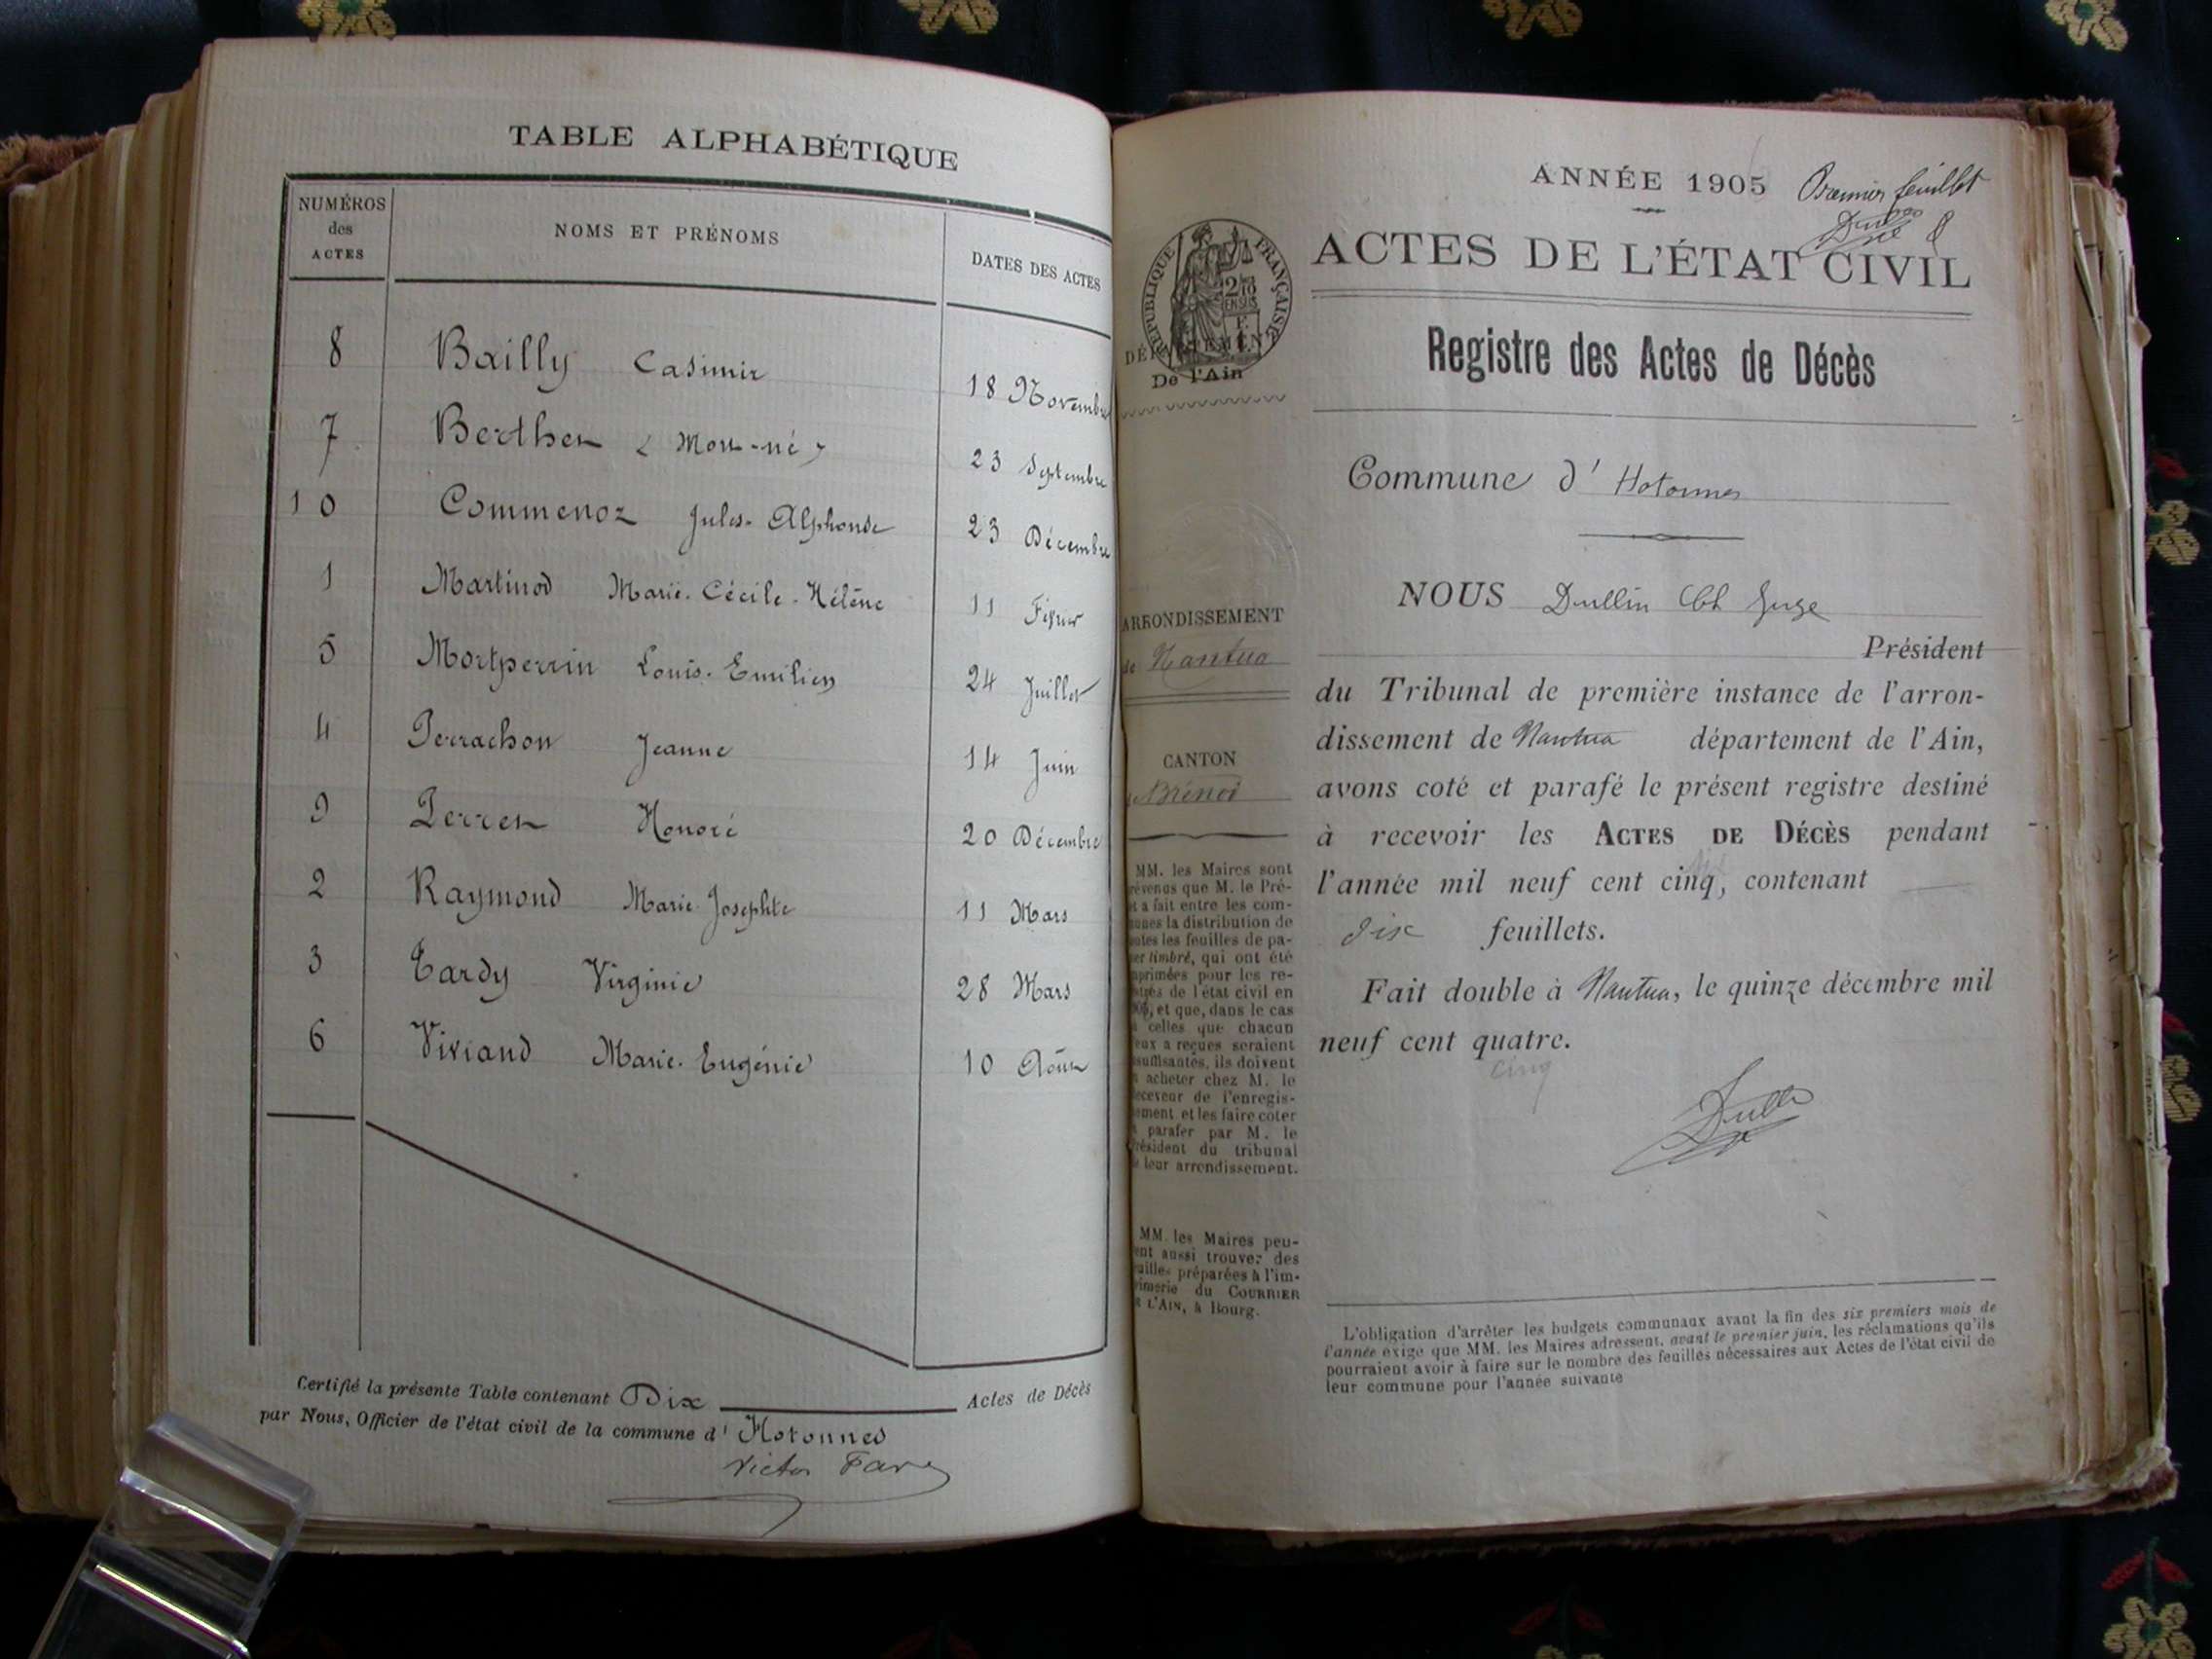 TABLE ALPHABÉTIQUE
NUMÉROS des ACTES
NOMS ET PRÉNOMS
DATES DES ACTES
8 Bailly Casimir 18 Novembre
7 Berthet (Mort-né) 23 Septembre
10 Commenoz Jules-Alphonse 23 Décembre
1 Martinod Marie-Cécile-Hélène 11 Février
5 Montperrin Louis-Emilien 24 Juillet
4 Perrachon Jeanne 14 Juin
9 Perret Honoré 20 Décembre
2 Raymond Marie-Josephte 11 Mars
3 Tardy Virginie 28 Mars
6 Viviand Marie-Eugénie 10 Août
Certifié la présente Table contenant Dix Actes de Décès
par Nous, Officier de l'état civil de la commune d' Hotonnes
Victor
ANNÉE 1905
Premier feuillet
ACTES DE L'ÉTAT CIVIL
RÉPUBLIQUE FRANÇAISE
De l'Ain
Registre des Actes de Décès
Commune d' Hotonnes
NOUS Dullin Ch Juge
Président
du Tribunal de première instance de l'arron-
dissement de Nantua département de l'Ain,
avons coté et parafé le présent registre destiné
à recevoir les ACTES DE DÉCÈS pendant
l'année mil neuf cent cinq, contenant
dix feuillets.
Fait double à Nantua, le quinze décembre mil
neuf cent quatre.
cinq
ARRONDISSEMENT
de Nantua
CANTON
de Brénod
MM. les Maires sont
prévenus que M. le Pré-
fet a fait entre les com-
munes la distribution de
toutes les feuilles de pa-
pier timbré, qui ont été
imprimées pour les re-
gistres de l'état civil en
et que, dans le cas
où celles que chacun
d'eux a reçues seraient
insuffisantes, ils doivent
en acheter chez M. le
receveur de l'enregis-
trement et les faire coter
et parafer par M. le
Président du tribunal
de leur arrondissement.
MM. les Maires peu-
vent aussi trouver des
feuilles préparées à l'im-
primerie du COURRIER
DE L'AIN, à Bourg.
L'obligation d'arrêter les budgets communaux avant la fin des six premiers mois de
l'année exige que MM. les Maires adressent, avant le premier juin, les réclamations qu'ils
pourraient avoir à faire sur le nombre des feuilles nécessaires aux Actes de l'état civil de
leur commune pour l'année suivante